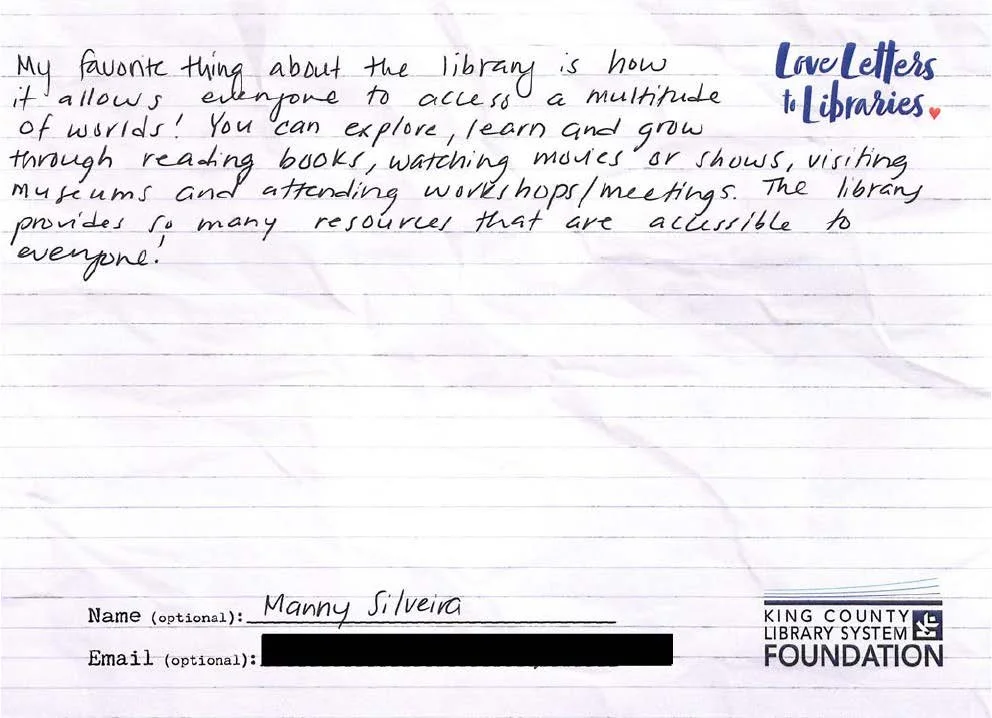 My favorite thing about the library is how
it allows everyone to access a multitude
of worlds! You can explore, learn and grow
through reading books, watching movies or shows, visiting
museums and attending workshops/meetings. The library
provides so many resources that are accessible to
everyone!
Love Letters
to Libraries
Name (optional): Manny Silveira
Email (optional):
KING COUNTY
LIBRARY SYSTEM
FOUNDATION